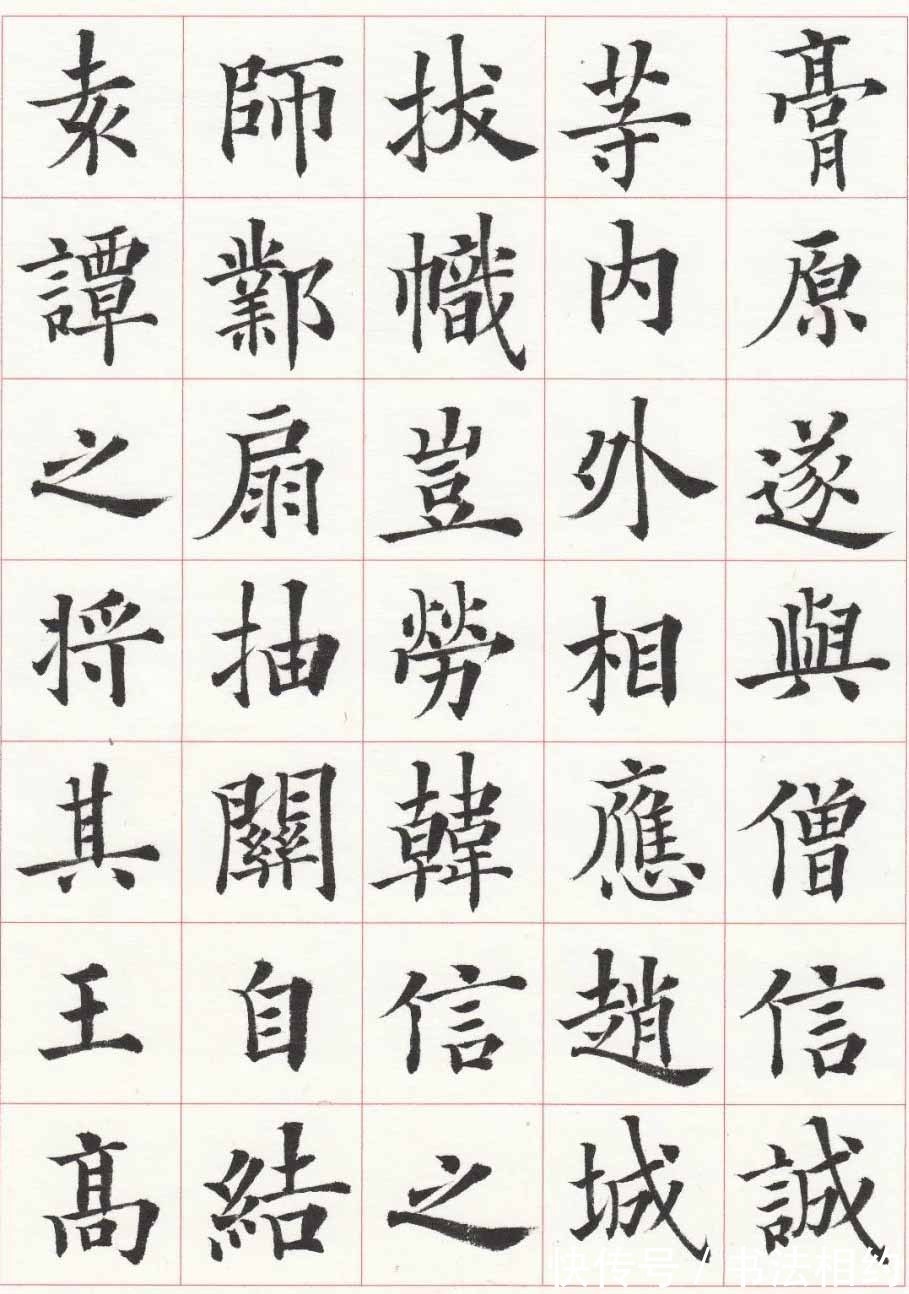 膏原遂與僧信誠
等内外相應趙城
拔幟豈勞韓信之
師鄴扇抽關自結
袁譚之将其王髙
快传号 / 书法相约